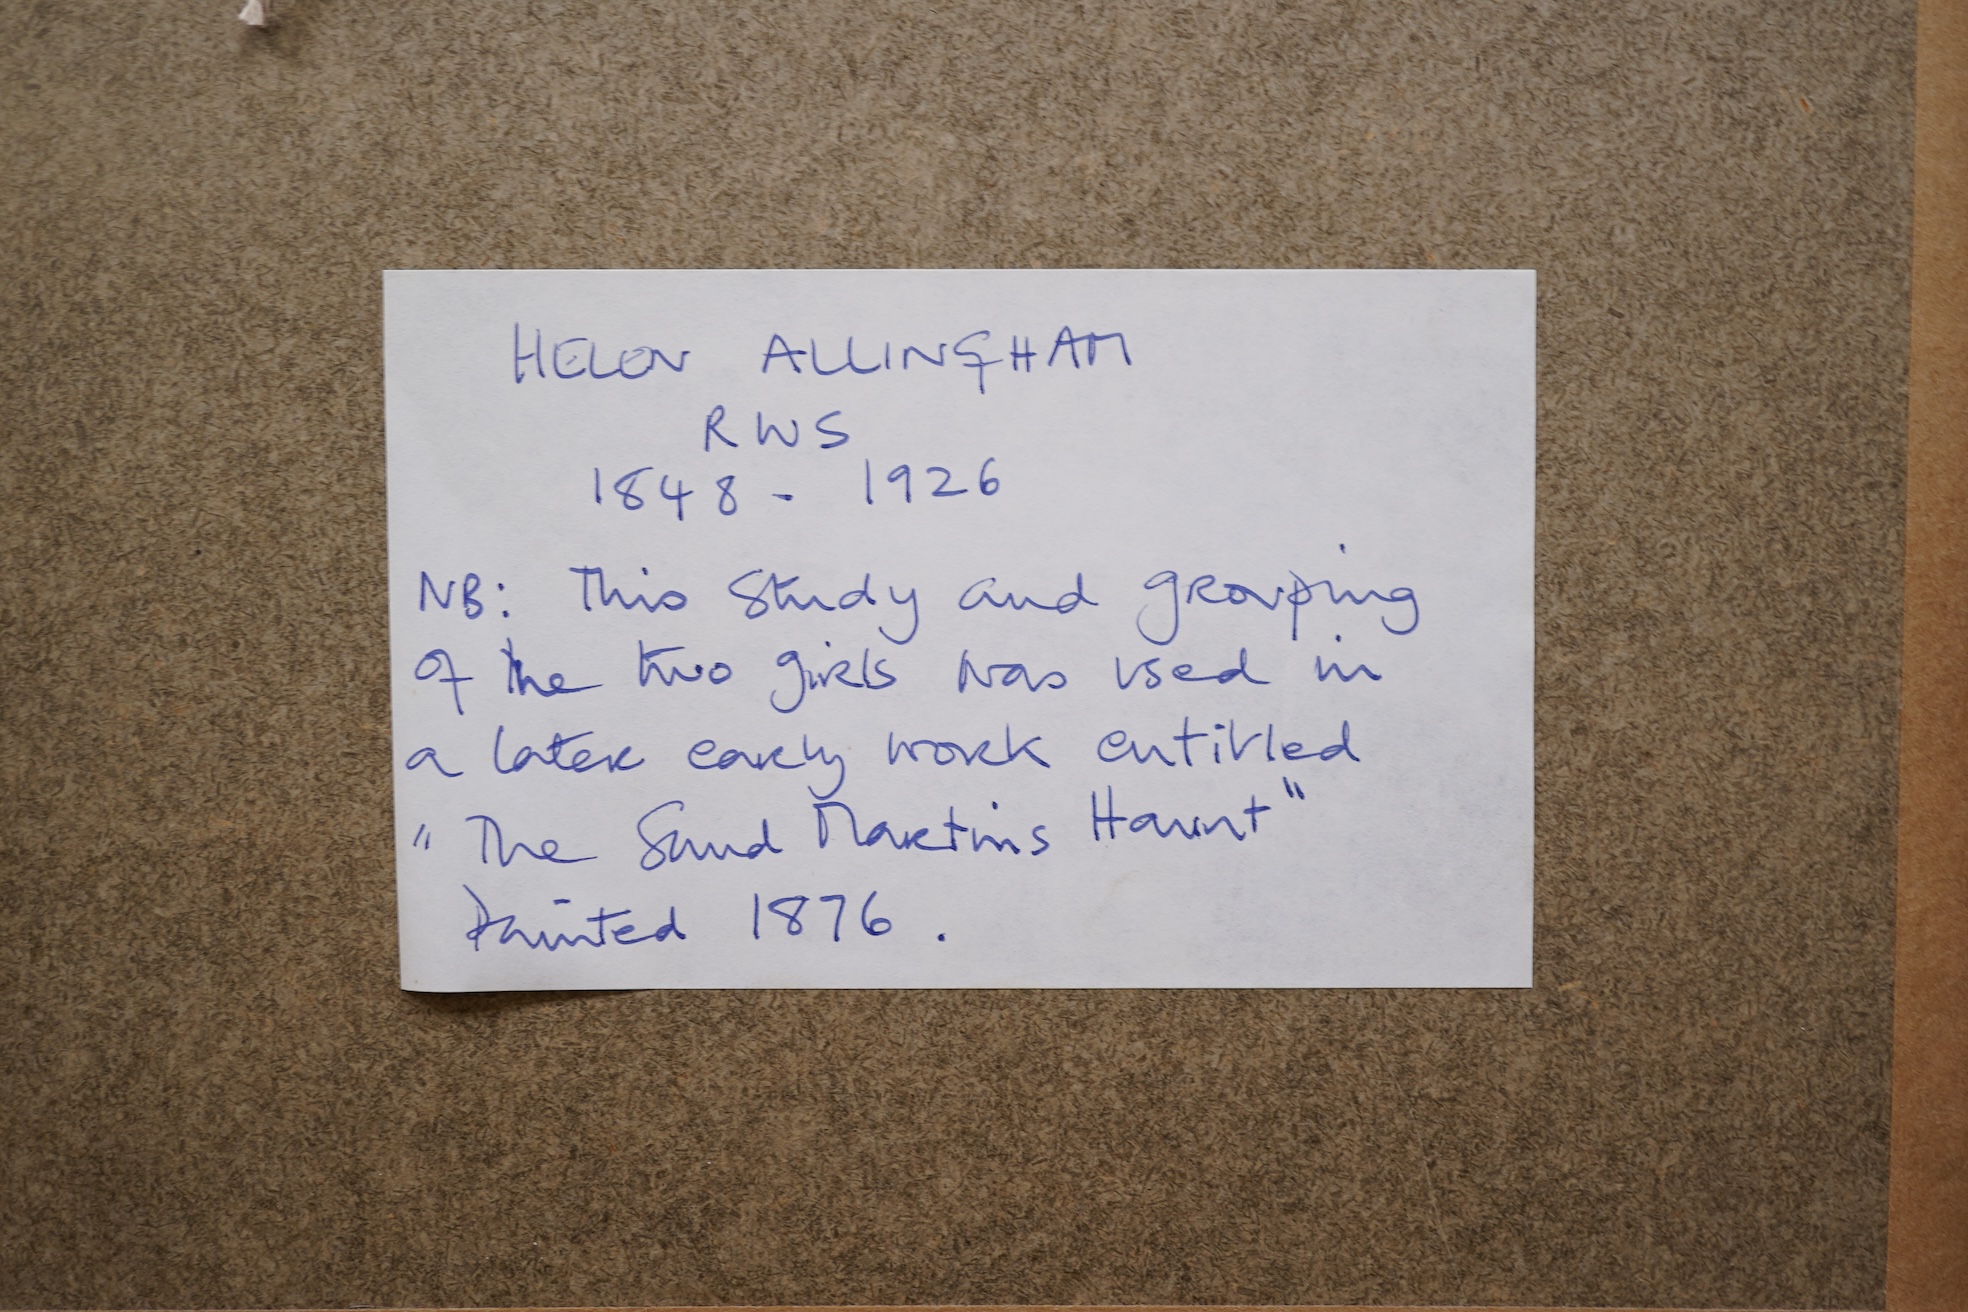 HELEN ALLINGHAM
RWS
1848 - 1926
NB: This study and grouping
of the two girls was used in
a later early work entitled
"The Sand Martins Haunt"
Painted 1876.